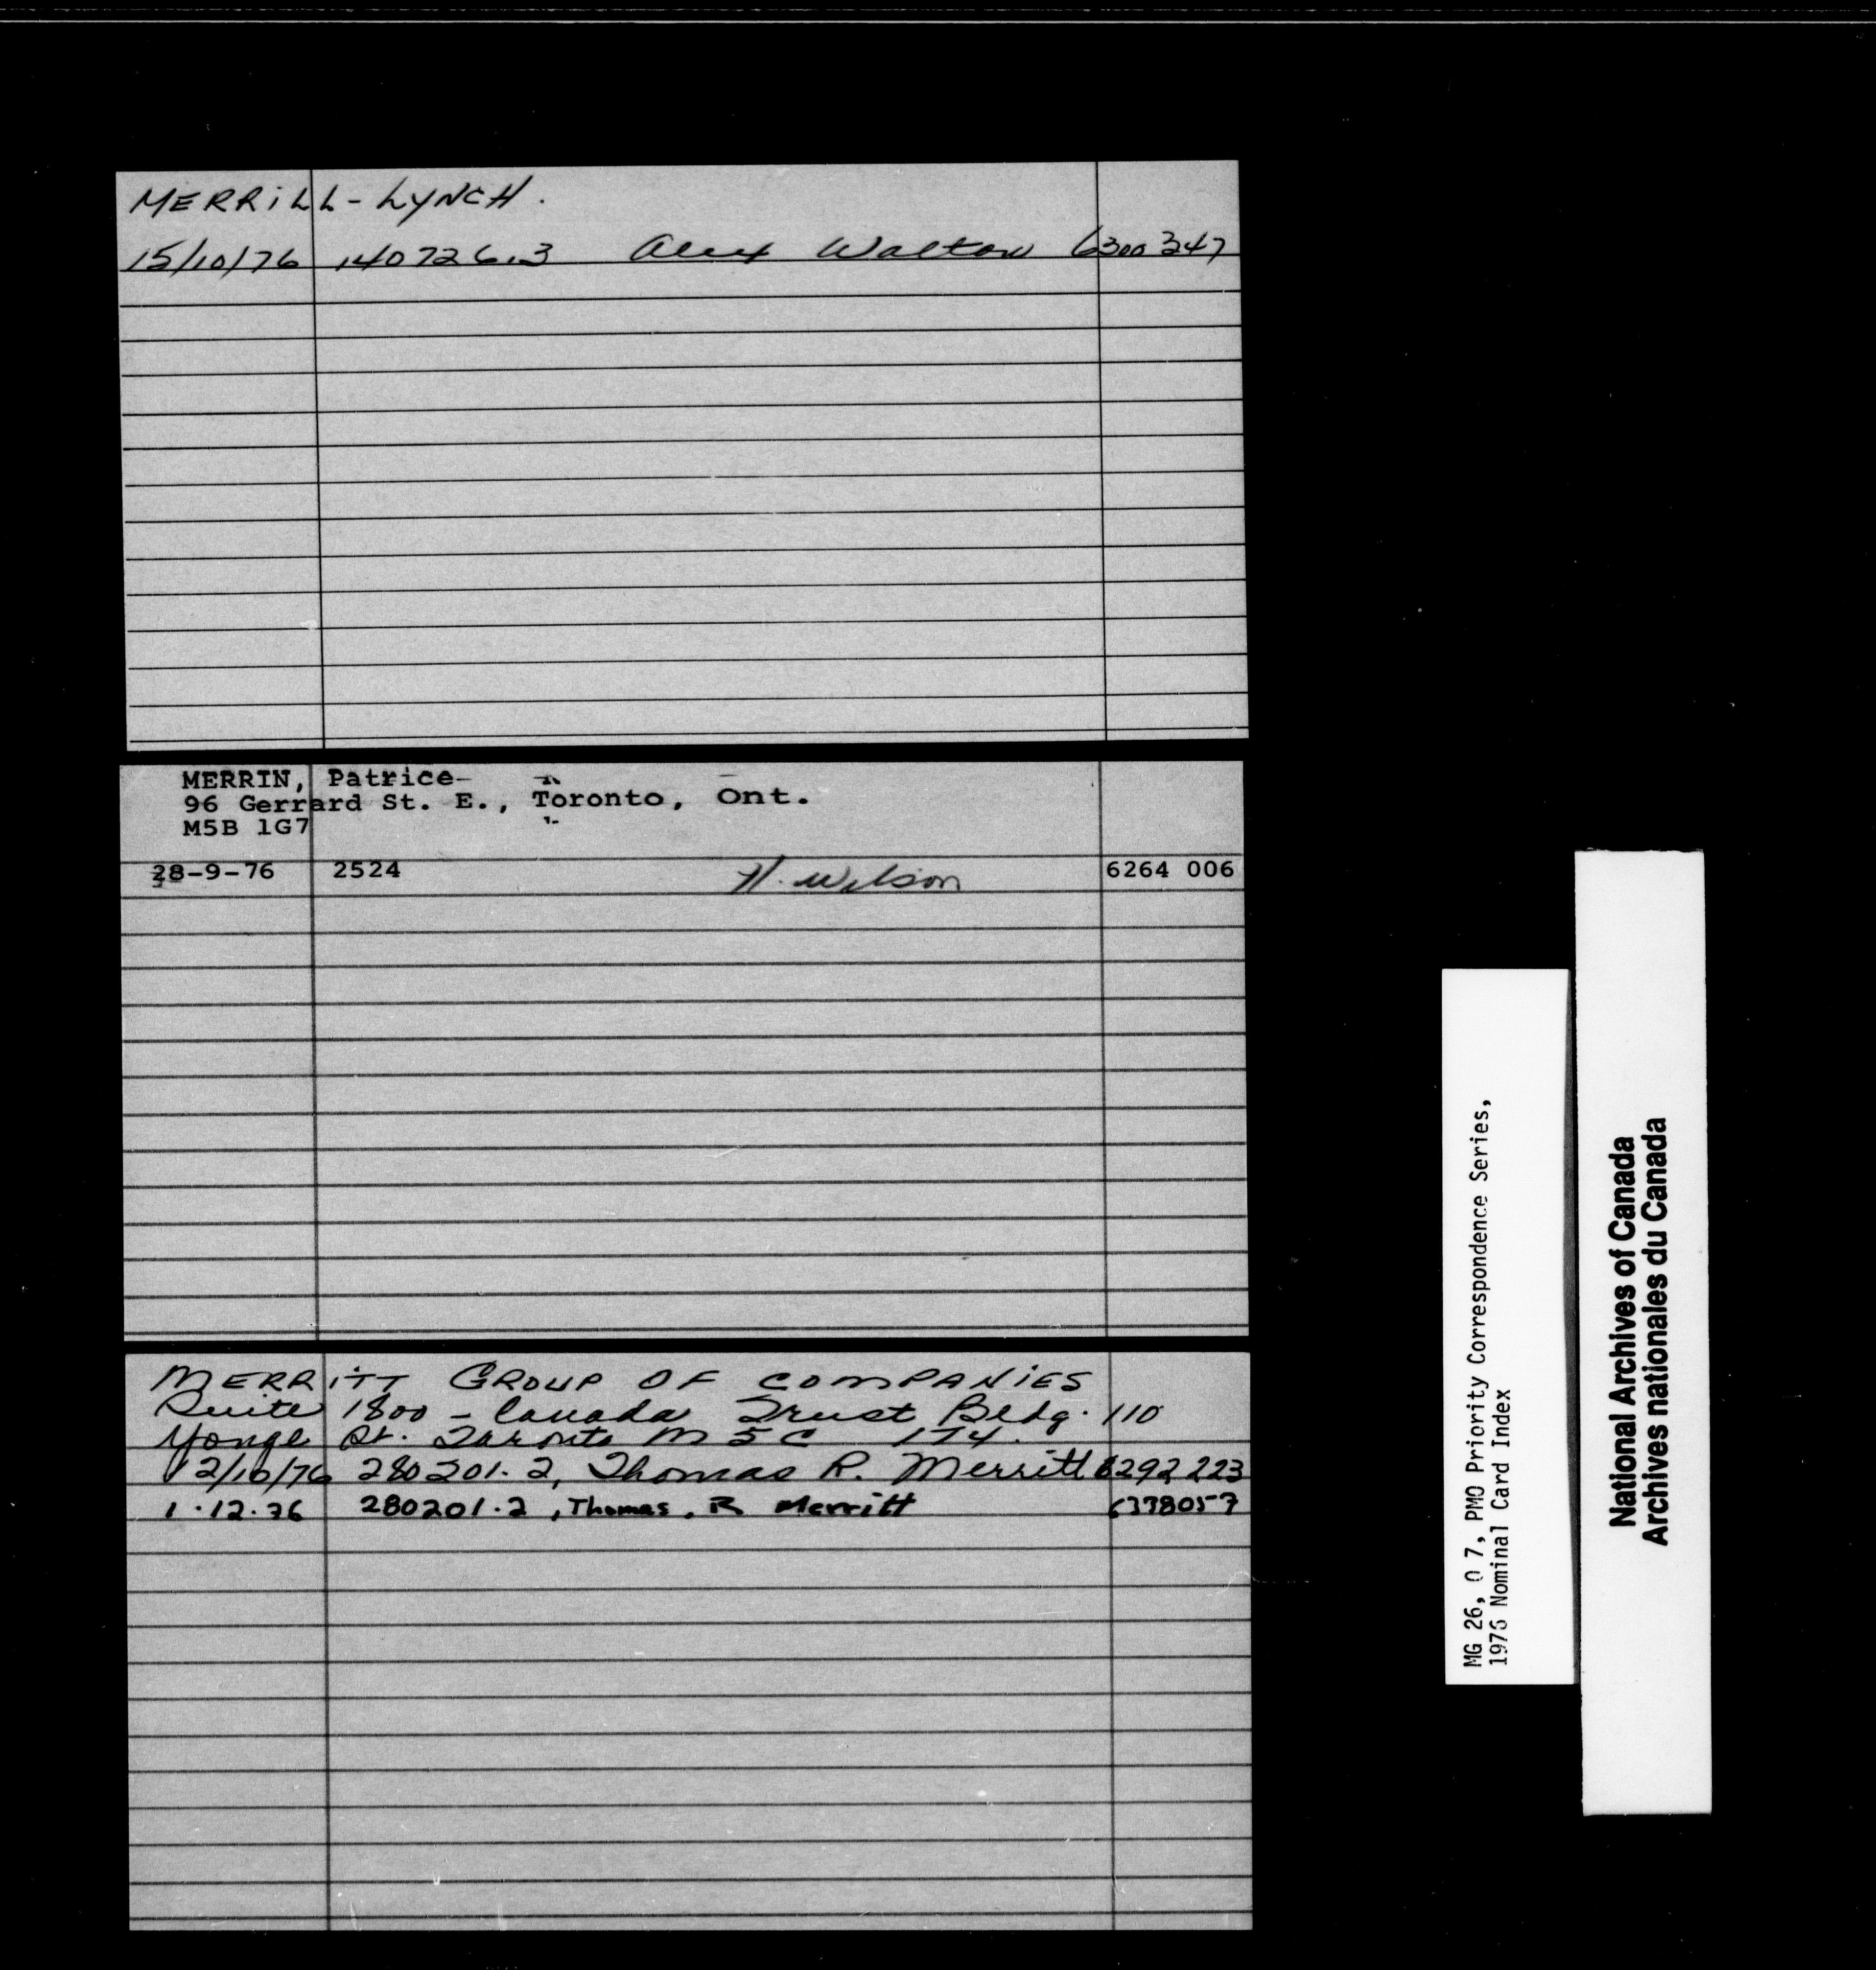 MERRILL-LYNCH.
15/10/76 140726.3 Alex Walton 6300347
MERRIN, Patrice
96 Gerrard St. E., Toronto, Ont.
M5B 1G7
28-9-76 2524 H. Wilson 6264 006
MERRITT GROUP OF COMPANIES
Suite 1800 - Canada Trust Bldg. 110
Yonge St. Toronto M5C 1T4.
12/10/76 280201.2, Thomas R. Merritt 6292223
1.12.76 280201.2, Thomas. R Merritt 6378057
MG 26, O 7, PMO Priority Correspondence Series,
1976 Nominal Card Index
National Archives of Canada
Archives nationales du Canada